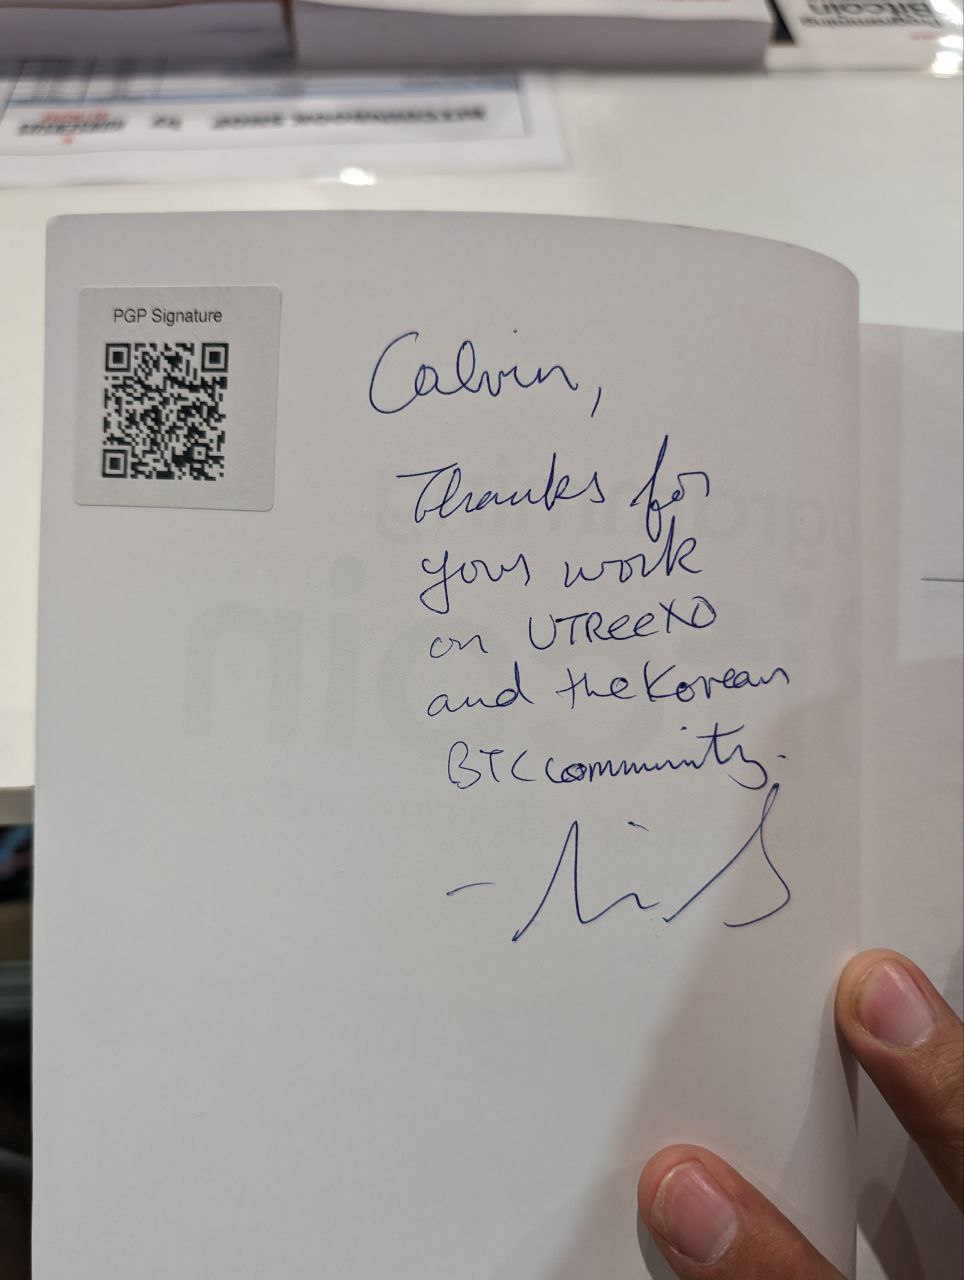 Programming
Bitcoin
PGP Signature
Calvin,
Thanks for
your work
on UTREEXO
and the Korean
BTC community.